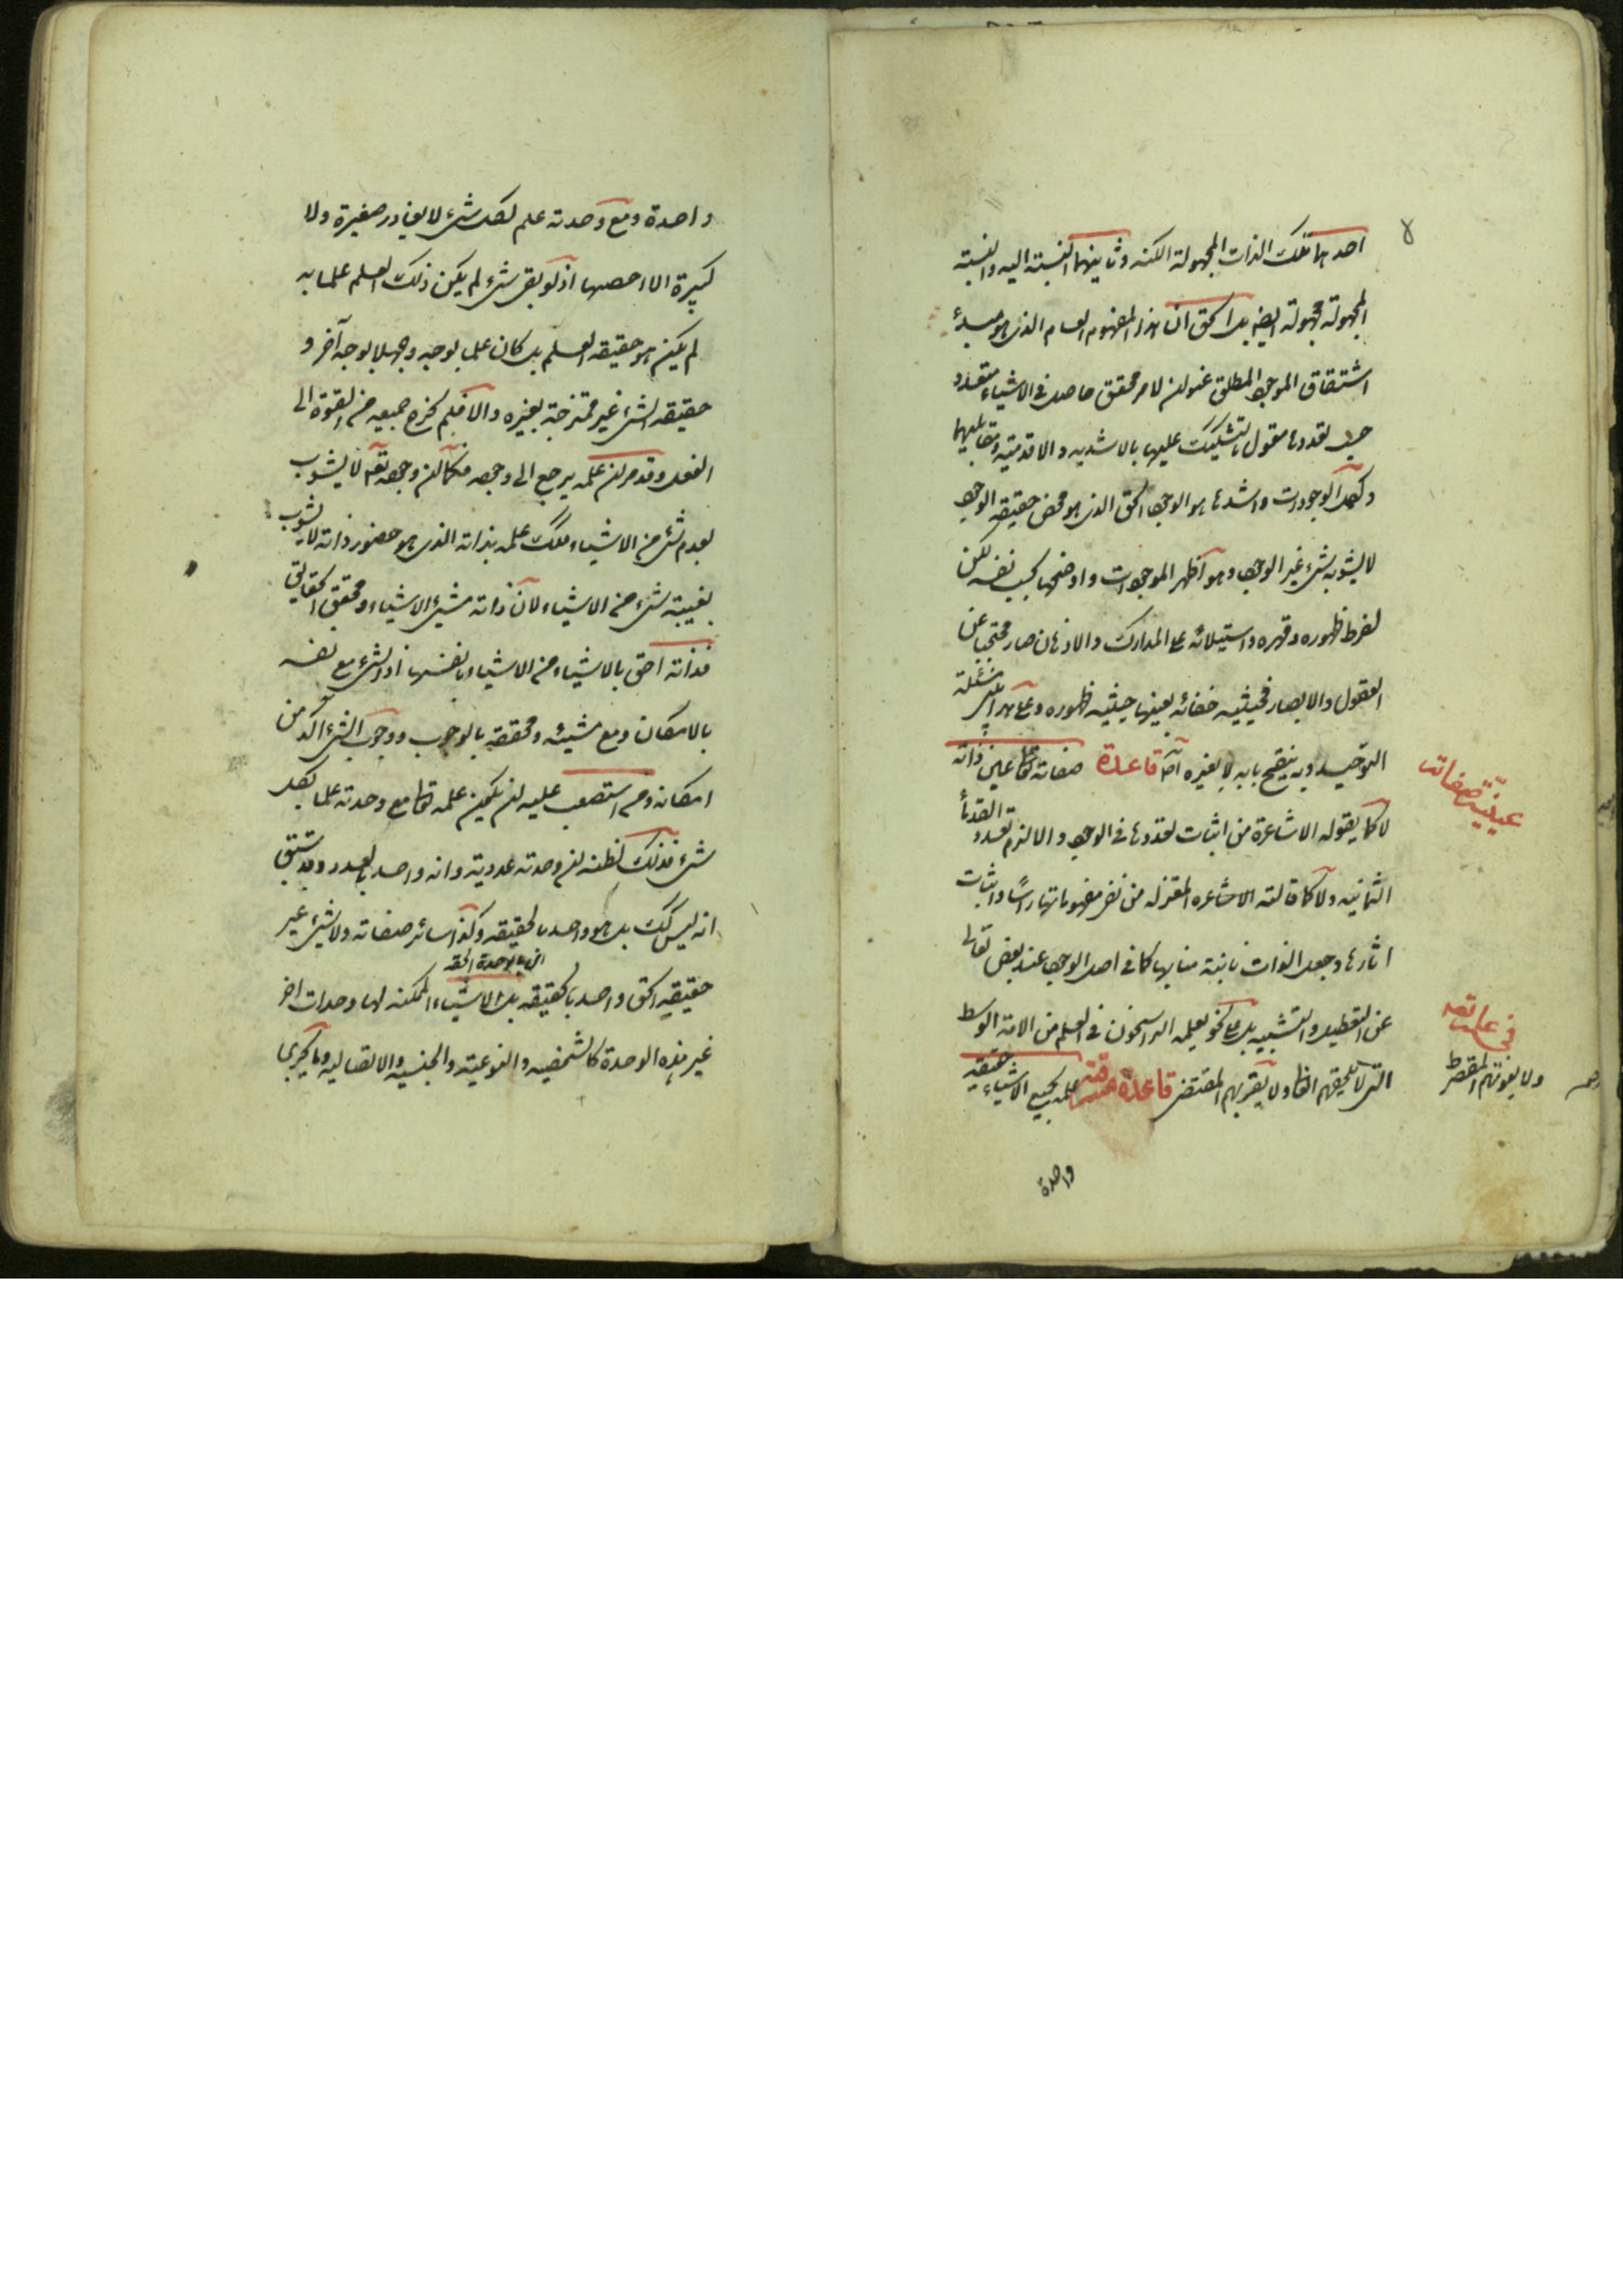 احدهما تلك الذات المجهولة الكنه وثانيهما النسبة اليه والنسبة
المجهولة مجهولة ايضا بل الحق ان هذا المفهوم العام الذي هو مبدء
اشتقاق الموجود المطلق عنوان لامر محقق حاصل في الاشياء متعدد
حسب تعددها مقول بالتشكيك عليها بالاشدية والاقدمية ومقابليهما
واكمل الوجودات واشدها هو الوجود الحق الذي هو محض حقيقة الوجود
لا يشوبه شيء غير الوجود وهو اظهر الموجودات واوضحها بحسب نفسه لكن
لفرط ظهوره وقهره واستيلائه على المدارك والاذهان صار محتجبا عن
العقول والابصار فحيثية خفائه بعينها حيثية ظهوره وعلى هذا يبتنى مسئلة
التوحيد وبه ينفتح بابه لا بغيره اه قاعدة صفاته تعالى عين ذاته
عينية صفات
لا كما يقوله الاشاعرة من اثبات تعددها في الوجود والا لزم تعدد القدماء
الثمانية ولا كما قالته الاشاعره المعتزله من نفى مفهوماتها راسًا واثبات
اثارها وجعل الذات نائبة منابها كما في اصل الوجود عند بعض تعالى
عن التعطيل والتشبيه بل على نحو يعلمه الراسخون في العلم من الامة الوسط
في علمه تعالى
التي لا يلحقهم الغالي ولا يقربهم المقتضى قاعدة مشرقية علمه بجميع الاشياء حقيقة
ولا يفوتهم المقصر
واحدة
واحدة ومع وحدته علم بكل شيء لا يغادر صغيرة ولا
كبيرة الا احصيها اذ لو بقي شيء لم يكن ذلك العلم علما به
لم يكن هو حقيقة العلم بل كان علما بوجه وجهلا بوجه آخر و
حقيقة الشيء غير ممتزجة بغيره والا فلم يخرج جميعه من القوة الى
الفعل وقد مر ان علمه يرجع الى وجوده فكما ان وجوده تعالى لا يشوب
بعدم شيء من الاشياء فكذلك علمه بذاته الذي هو حضور ذاته لا يشوب
بغيبة شيء من الاشياء لان ذاته مشيئ الاشياء ومحقق الحقايق
فذاته احق بالاشياء من الاشياء بانفسها اذ الشيء مع نفسه
بالامكان ومع مشيئه ومحققه بالوجوب ووجوب الشيء اكد من
امكانه ومن استصعب عليه ان يكون علمه تعالى مع وحدته علما بكل
شيء فذلك لظنه ان وحدته عددية وانه واحد بالعدد وقد سبق
انه ليس كذلك بل هو واحد بالحقيقة وكذا سائر صفاته ولا شيء غير
اى بالوحدة الحقه
حقيقة الحق واحد بالحقيقة بل الاشياء الممكنه لها وحدات اخر
غير هذه الوحدة كالشخصية والنوعية والجنسية والاتصالية وما يجرى